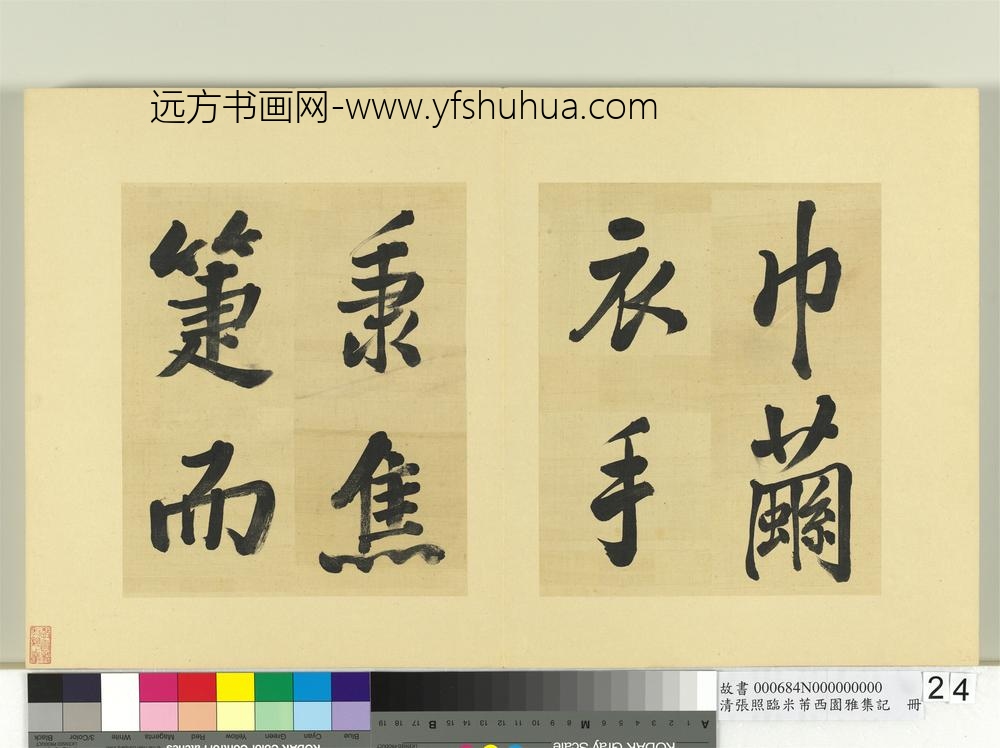 远方书画网-www.yfshuhua.com
巾繭
衣手
秉焦
箑而
故書 000684N000000000
清張照臨米芾西園雅集記 冊
24
Black
3/Color
White
Magenta
Red
Yellow
Green
Cyan
Blue
A 1 2 3 4 5 6 M 8 9 10 11 12 13 14 15 B 17 18 19
KODAK Gray Scale
KODAK Color Control Patches